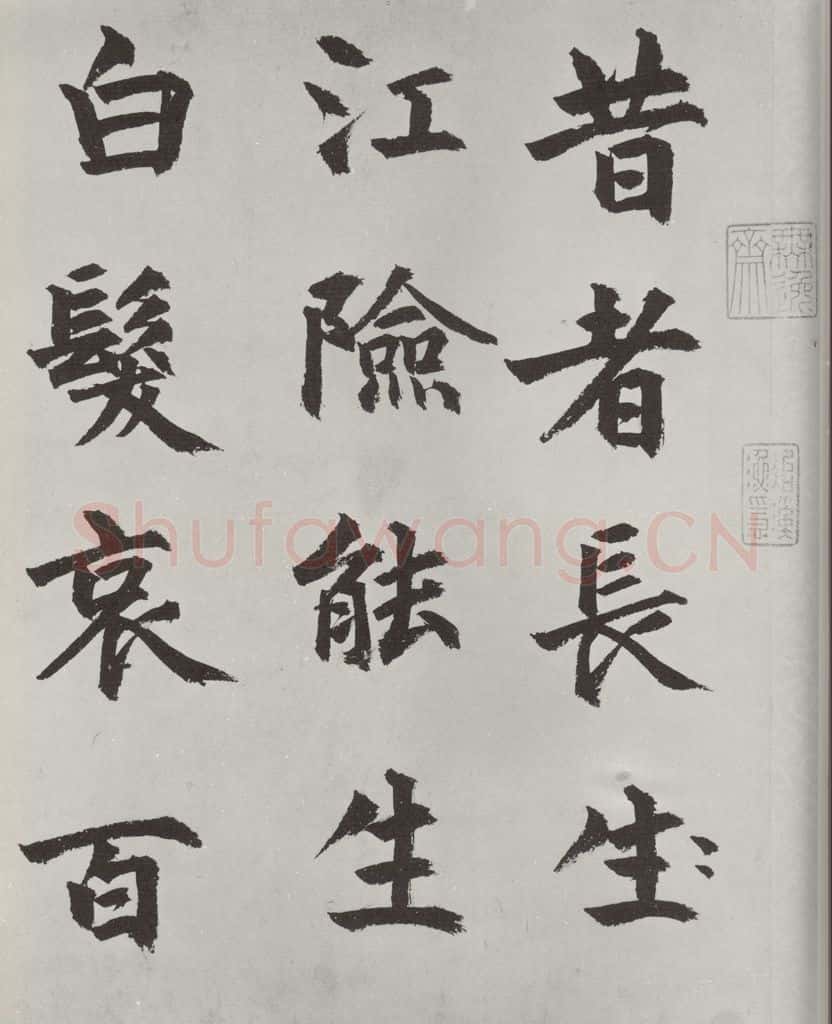 昔者長生
江險能生
白髮哀百
Shufawang.CN